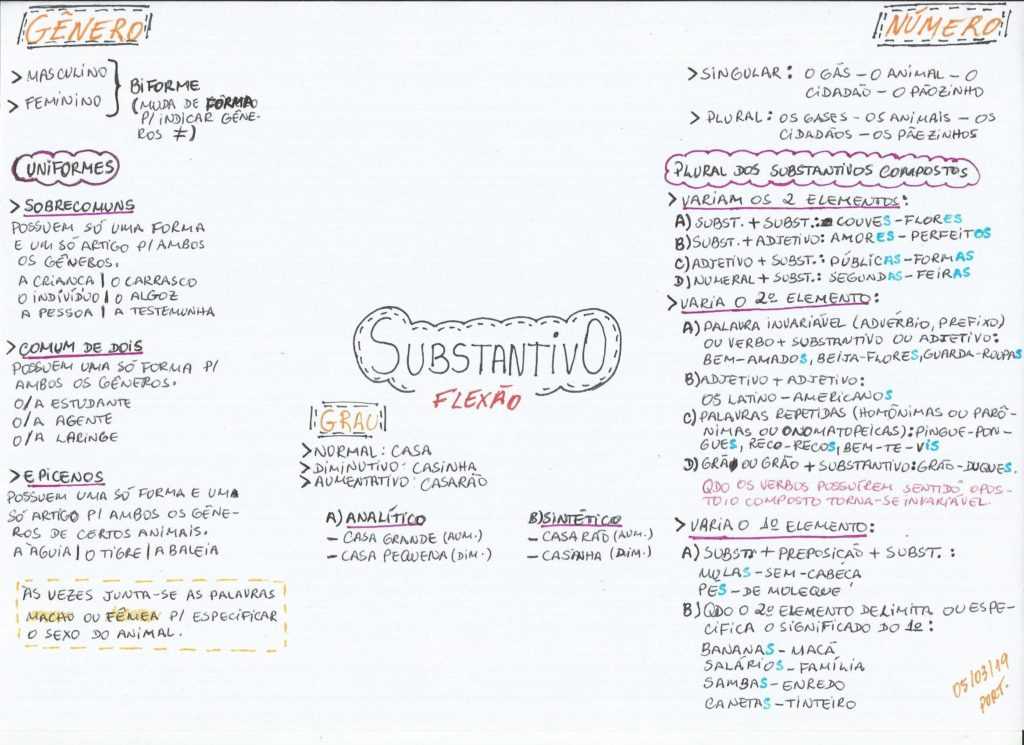 GÊNERO
> MASCULINO
> FEMININO
BIFORME
(MUDA DE FORMA
P/ INDICAR GÊNE-
ROS ≠)
UNIFORMES
> SOBRECOMUNS
POSSUEM SÓ UMA FORMA
E UM SÓ ARTIGO P/ AMBOS
OS GÊNEROS.
A CRIANÇA | O CARRASCO
O INDIVÍDUO | O ALGOZ
A PESSOA | A TESTEMUNHA
> COMUM DE DOIS
POSSUEM UMA SÓ FORMA P/
AMBOS OS GÊNEROS.
O/A ESTUDANTE
O/A AGENTE
O/A LARINGE
> EPICENOS
POSSUEM UMA SÓ FORMA E UM
SÓ ARTIGO P/ AMBOS OS GÊNE-
ROS DE CERTOS ANIMAIS.
A ÁGUIA | O TIGRE | A BALEIA
ÀS VEZES JUNTA-SE AS PALAVRAS
MACHO OU FÊMEA P/ ESPECIFICAR
O SEXO DO ANIMAL.
SUBSTANTIVO
FLEXÃO
GRAU
> NORMAL: CASA
> DIMINUTIVO: CASINHA
> AUMENTATIVO: CASARÃO
A) ANALÍTICO
- CASA GRANDE (AUM.)
- CASA PEQUENA (DIM.)
B) SINTÉTICO
- CASARÃO (AUM.)
- CASINHA (DIM.)
NÚMERO
> SINGULAR: O GÁS - O ANIMAL - O
CIDADÃO - O PÃOZINHO
> PLURAL: OS GASES - OS ANIMAIS - OS
CIDADÃOS - OS PÃEZINHOS
PLURAL DOS SUBSTANTIVOS COMPOSTOS
> VARIAM OS 2 ELEMENTOS:
A) SUBST. + SUBST.: COUVES-FLORES
B) SUBST. + ADJETIVO: AMORES-PERFEITOS
C) ADJETIVO + SUBST.: PÚBLICAS-FORMAS
D) NUMERAL + SUBST.: SEGUNDAS-FEIRAS
> VARIA O 2º ELEMENTO:
A) PALAVRA INVARIÁVEL (ADVÉRBIO, PREFIXO)
OU VERBO + SUBSTANTIVO OU ADJETIVO:
BEM-AMADOS, BEIJA-FLORES, GUARDA-ROUPAS
B) ADJETIVO + ADJETIVO:
OS LATINO-AMERICANOS
C) PALAVRAS REPETIDAS (HOMÔNIMAS OU PARÔ-
NIMAS OU ONOMATOPEICAS): PINGUE-PON-
GUES, RECO-RECOS, BEM-TE-VIS
D) GRÃ OU GRÃO + SUBSTANTIVO: GRÃO-DUQUES.
QDO OS VERBOS POSSUÍREM SENTIDO OPOS-
TO, O COMPOSTO TORNA-SE INVARIÁVEL.
> VARIA O 1º ELEMENTO:
A) SUBST + PREPOSIÇÃO + SUBST.:
MULAS-SEM-CABEÇA
PÉS-DE MOLEQUE
B) QDO O 2º ELEMENTO DELIMITA OU ESPE-
CIFICA O SIGNIFICADO DO 1º:
BANANAS-MAÇÃ
SALÁRIOS-FAMÍLIA
SAMBAS-ENREDO
CANETAS-TINTEIRO
05/03/19
PORT.